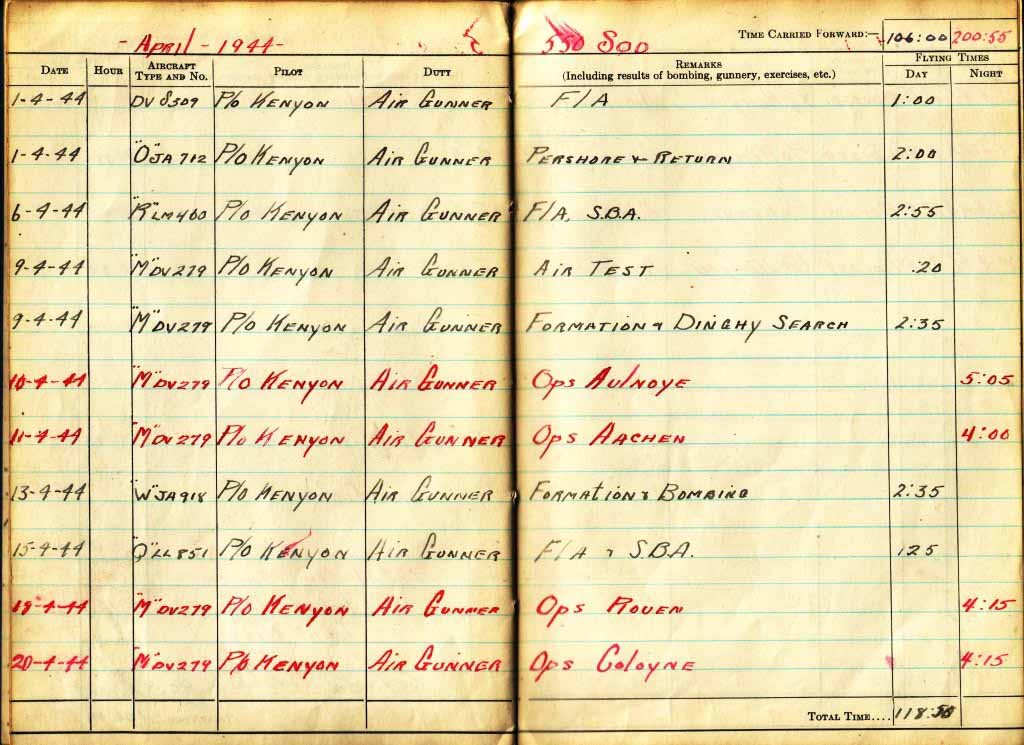 - April - 1944 -
550 Sqd Time Carried Forward:— 106:00 200:55
Date Hour Aircraft Type and No. Pilot Duty Remarks (Including results of bombing, gunnery, exercises, etc.) Flying Times Day Night
1-4-44 DV 8309 P/o Kenyon Air Gunner F/A 1:00
1-4-44 "O" JA 712 P/o Kenyon Air Gunner Pershore & Return 2:00
6-4-44 "R" LM460 P/o Kenyon Air Gunner F/A, S.B.A. 2:55
9-4-44 "M" DV279 P/o Kenyon Air Gunner Air Test :20
9-4-44 "M" DV279 P/o Kenyon Air Gunner Formation & Dinghy Search 2:35
10-4-44 "M" DV279 P/o Kenyon Air Gunner Ops Aulnoye 5:05
11-4-44 "M" DV279 P/o Kenyon Air Gunner Ops Aachen 4:00
13-4-44 "W" JA918 P/o Kenyon Air Gunner Formation & Bombing 2:35
15-4-44 "Q" LL851 P/o Kenyon Air Gunner F/A & S.B.A. 1:25
18-4-44 "M" DV279 P/o Kenyon Air Gunner Ops Rouen 4:15
20-4-44 "M" DV279 P/o Kenyon Air Gunner Ops Cologne 4:15
Total Time.... 118:50